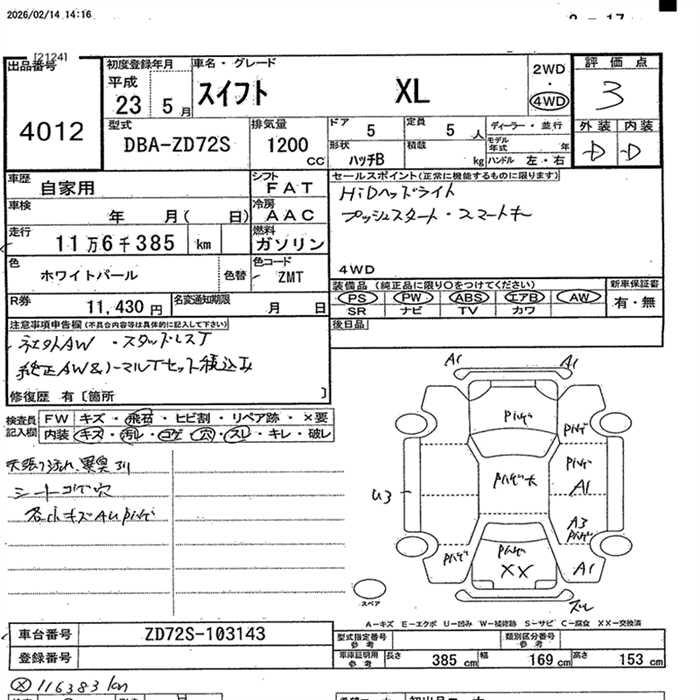 2026/02/14 14:16
2 - 17
[2124]
出品番号
4012
初度登録年月
平成
23 5月
車名・グレード
スイフト XL
2WD
・
4WD
評価点
3
型式
DBA-ZD72S
排気量
1200
CC
ドア
5
定員
5人
形状
ハッチB
積載
kg
ディーラー・並行
モデル年式 年
ハンドル 左・右
外装 内装
D D
車歴
自家用
シフト
FAT
車検
年 月( 日)
冷房
AAC
走行
11万6千385 km
燃料
ガソリン
色
ホワイトパール
色替
色コード
ZMT
R券
11,430円
名変通知期限
月 日
セールスポイント(正常に機能するものに限ります)
HiDヘッドライト
プッシュスタート・スマートキー
4WD
装備品 (純正品に限り○をつけてください)
PS PW ABS エアB AW
SR ナビ TV カワ
新車保証書
有・無
後日品
注意事項申告欄(不具合内容等は具体的に記入して下さい)
社外AW ・スタッドレスT
純正AW&ノーマルTセット積込み
修復歴 有〔箇所 〕
検査員記入欄
FW キズ・飛石・ヒビ割・リペア跡・×要
内装 キズ・汚レ・コゲ・穴・スレ・キレ・破レ
天張り汚れ、異臭有
シートコゲ穴
各小キズAUピンゲ
A1
A1
ピンゲ
ピンゲ
ピンゲ
A1
U3
A3
ピンゲ
ピンゲ
ピンゲ
XX
A1
スレ
スペア
A-キズ E-エクボ U-凹み W-補修跡 S-サビ C-腐食 XX-交換済
車台番号
ZD72S-103143
登録番号
型式指定番号
参考
類別区分番号
参考
車庫証明用
参考
長さ 385cm
幅 169cm
高さ 153cm
ⓧ116383km